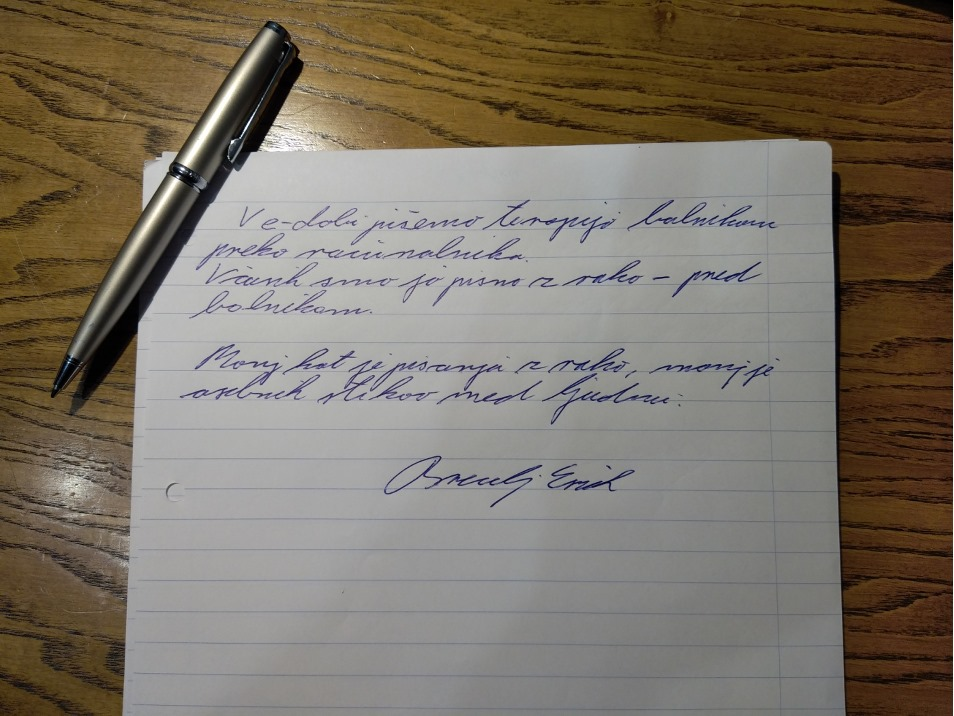 V e-dobi pišemo terapijo bolnikom
preko računalnika.
Včasih smo jo pisno z roko - pred
bolnikom.
Manj kot je pisanja z roko, manj je
osebnih stikov med ljudmi.
Erich